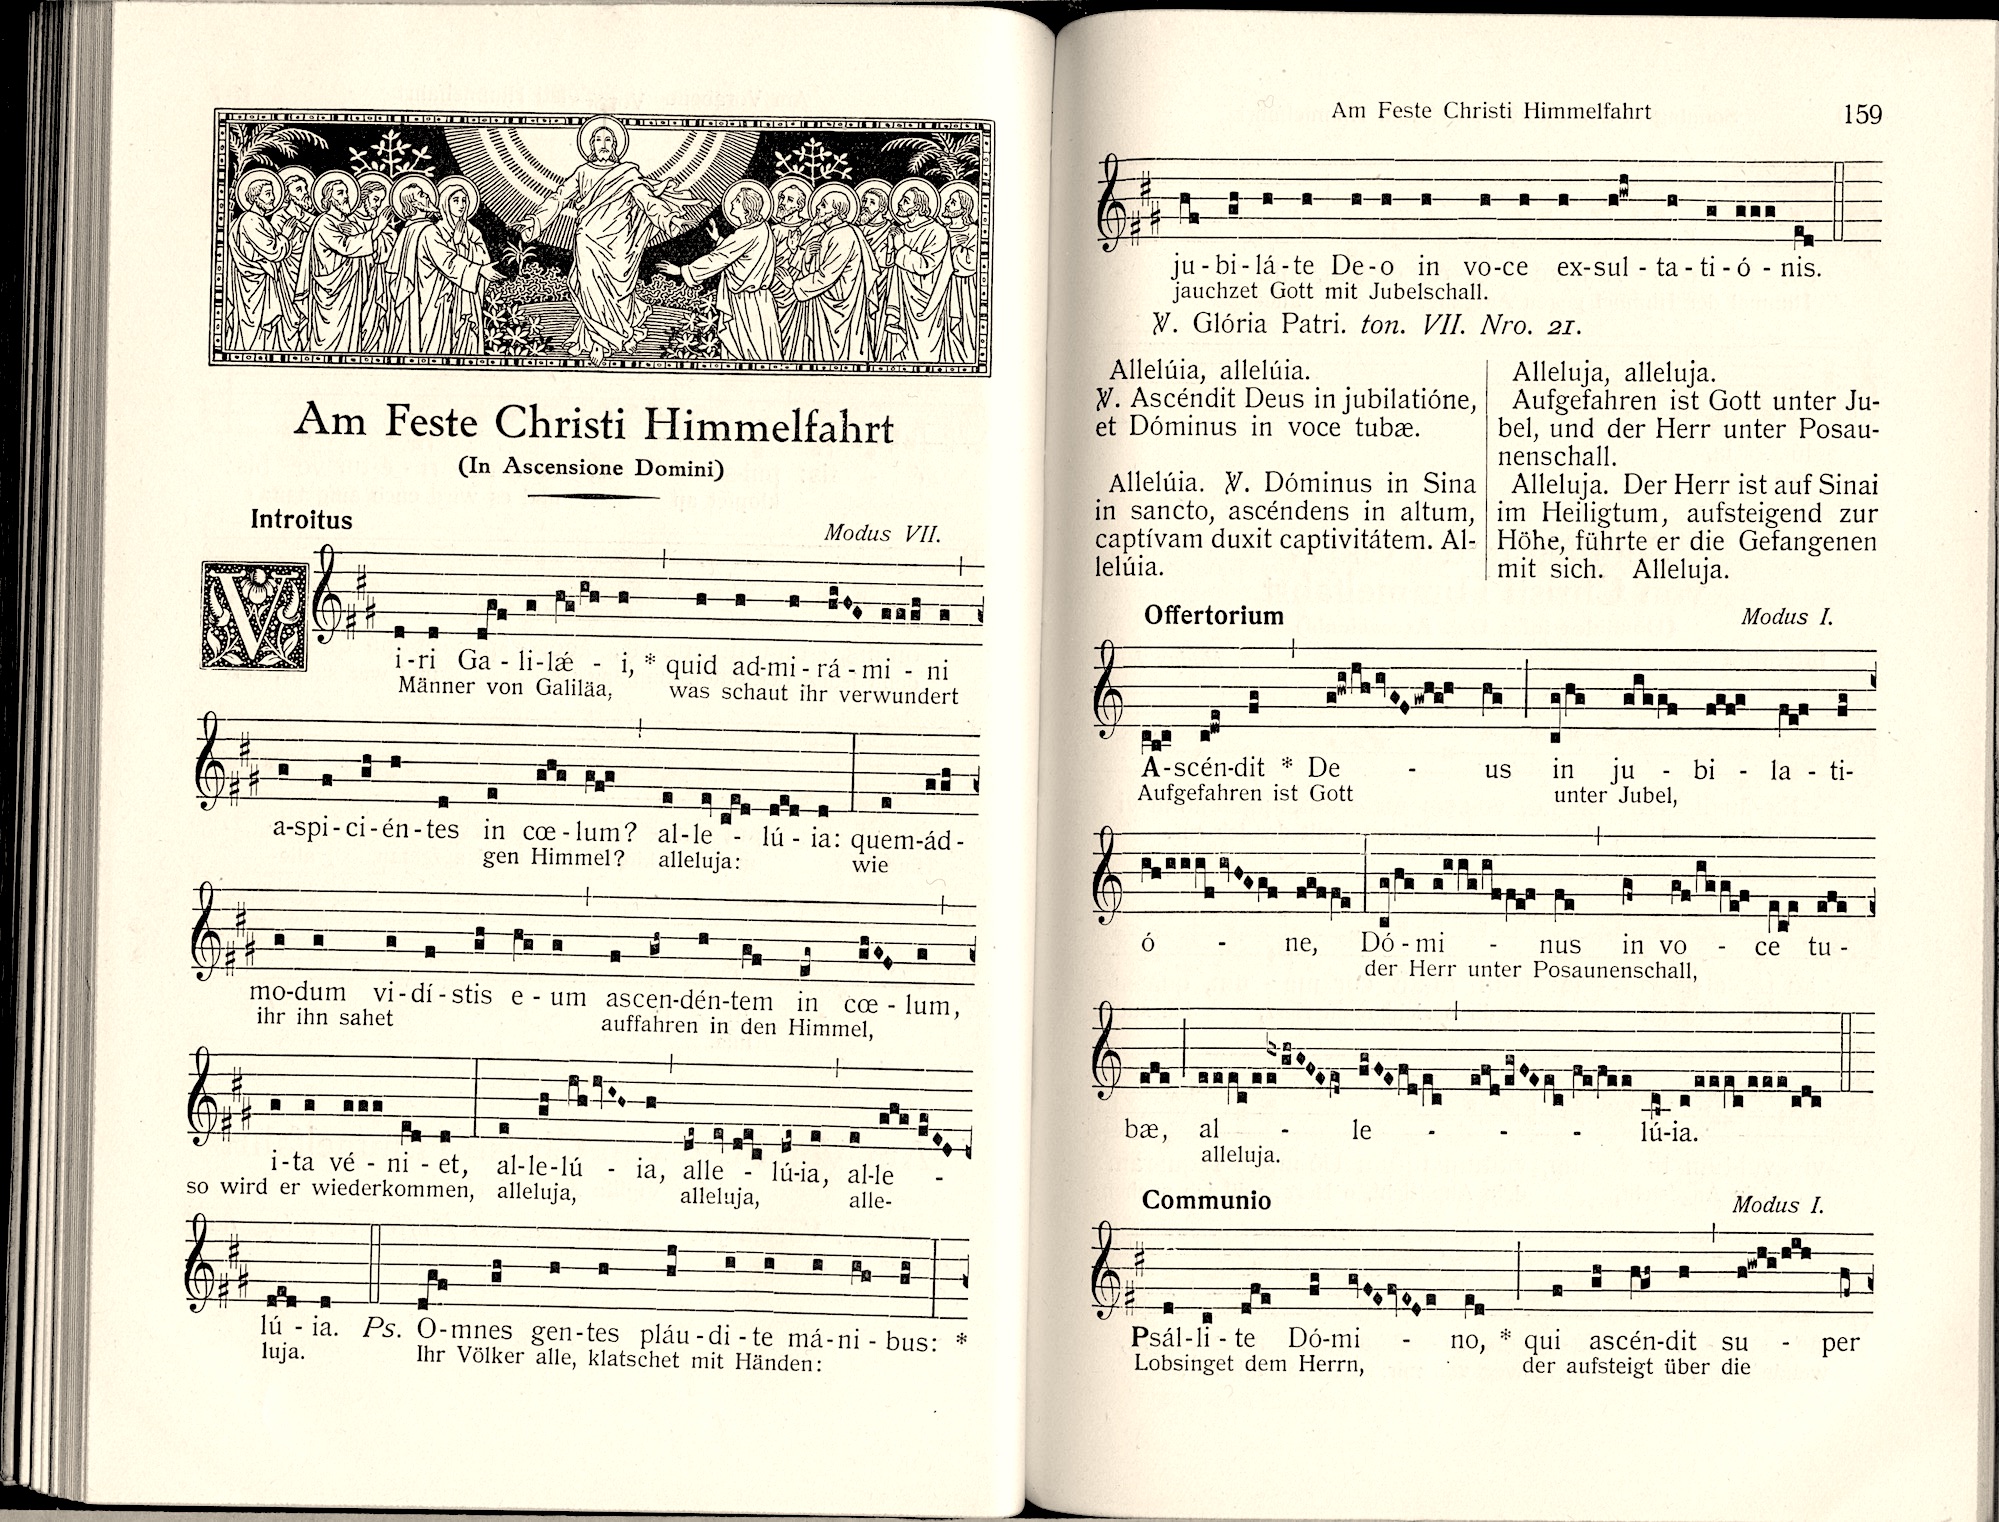 Am Feste Christi Himmelfahrt
(In Ascensione Domini)
Introitus
Modus VII.
V
i-ri Ga - li-lǽ - i, * quid ad-mi - rá - mi - ni
Männer von Galiläa, was schaut ihr verwundert
a-spi - ci - én - tes in cœ - lum? al-le - lú - ia: quem-ád -
gen Himmel? alleluja: wie
mo-dum vi - dí - stis e - um ascen-dén-tem in cœ - lum,
ihr ihn sahet auffahren in den Himmel,
i-ta vé - ni - et, al-le-lú - ia, alle - lú-ia, al-le -
so wird er wiederkommen, alleluja, alleluja, alle-
lú - ia. Ps. O-mnes gen-tes pláu - di - te má-ni - bus: *
luja. Ihr Völker alle, klatschet mit Händen:
Am Feste Christi Himmelfahrt 159
ju - bi - lá - te De - o in vo-ce ex-sul - ta - ti - ó - nis.
jauchzet Gott mit Jubelschall.
℣. Glória Patri. ton. VII. Nro. 21.
Allelúia, allelúia.
℣. Ascéndit Deus in jubilatióne,
et Dóminus in voce tubæ.
Allelúia. ℣. Dóminus in Sina
in sancto, ascéndens in altum,
captívam duxit captivitátem. Al-
lelúia.
Alleluja, alleluja.
Aufgefahren ist Gott unter Ju-
bel, und der Herr unter Posau-
nenschall.
Alleluja. Der Herr ist auf Sinai
im Heiligtum, aufsteigend zur
Höhe, führte er die Gefangenen
mit sich. Alleluja.
Offertorium
Modus I.
A-scén-dit * De - us in ju - bi - la - ti-
Aufgefahren ist Gott unter Jubel,
ó - ne, Dó - mi - nus in vo - ce tu -
der Herr unter Posaunenschall,
bæ, al - le - - - lú-ia.
alleluja.
Communio
Modus I.
Psál-li - te Dó-mi - no, * qui ascén-dit su - per
Lobsinget dem Herrn, der aufsteigt über die